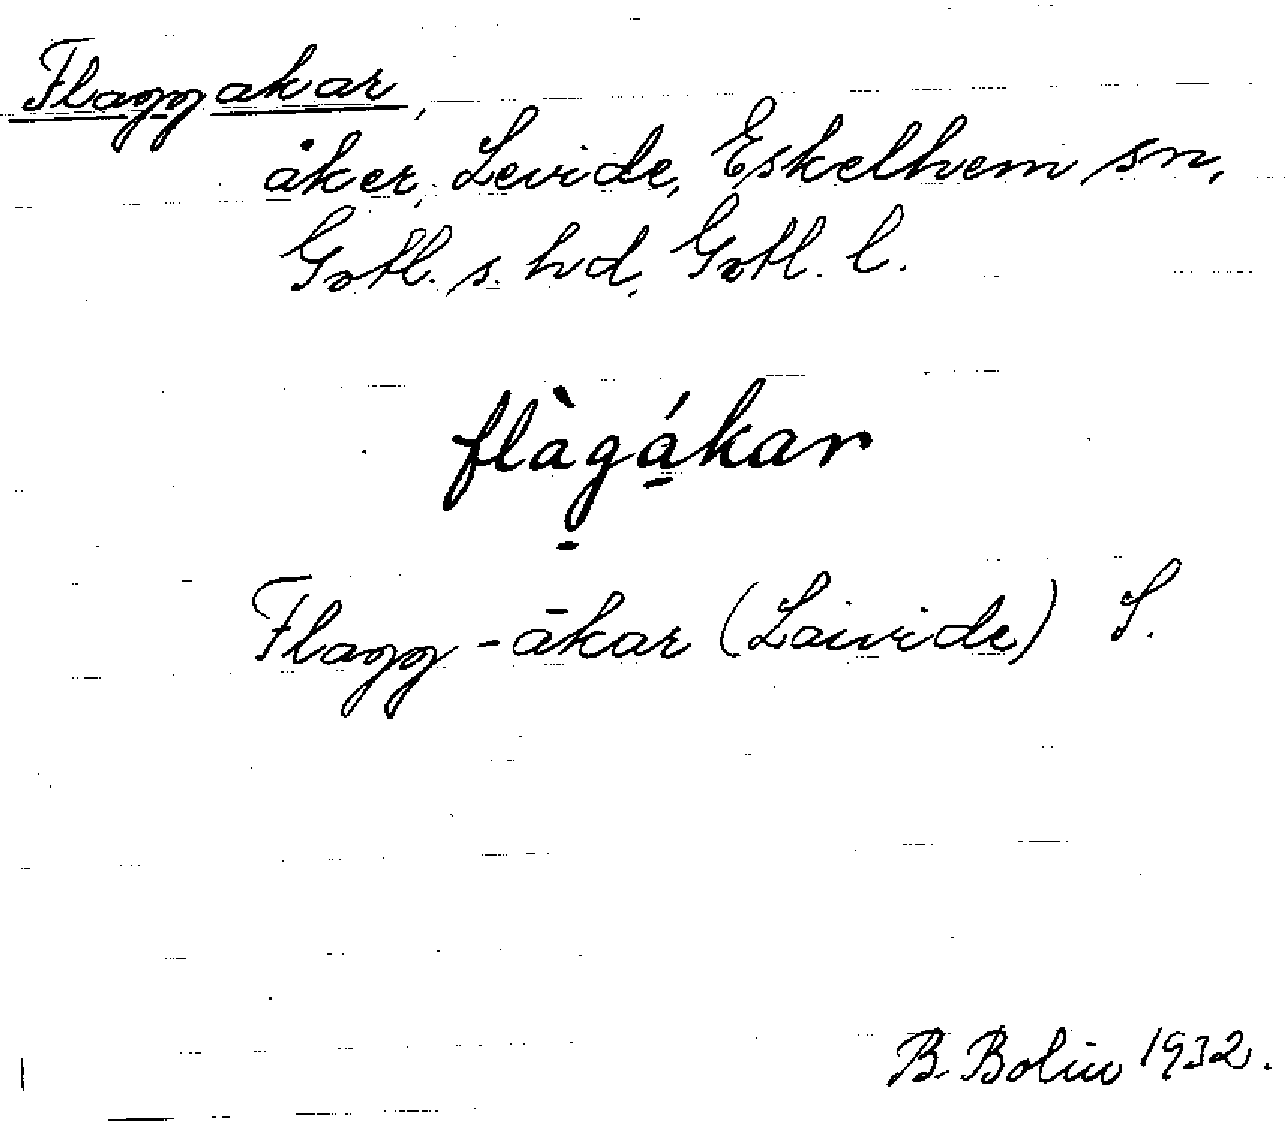 Flaggakar,
åker, Levide, Eskelhem sn,
Gotl. s. hd, Gotl. l.
flàgákar
Flagg-ākar (Laivide) S.
B. Bolin 1932.